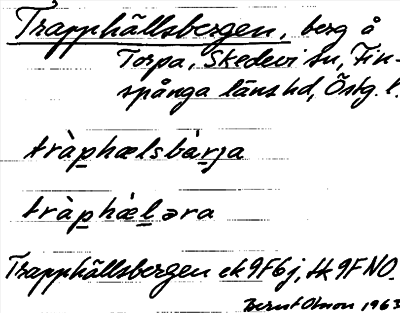 Trapphällsbergen, berg å
Torpa, Skedevi sn, Fin-
spånga läns hd, Östg. l.
tràp̲hælsbær̲ja
tràp̲hæl̲əra
Trapphällsbergen ek 9F6j, tk 9F NO.
Bernt Olsson 1963